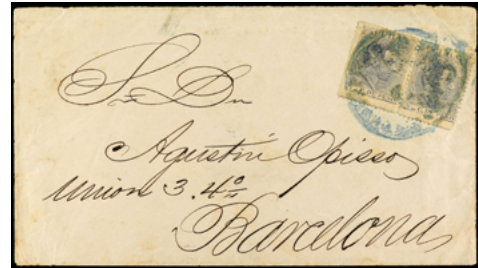 Sr. Dn
Agustin Opisso
Union 3. 4º
Barcelona